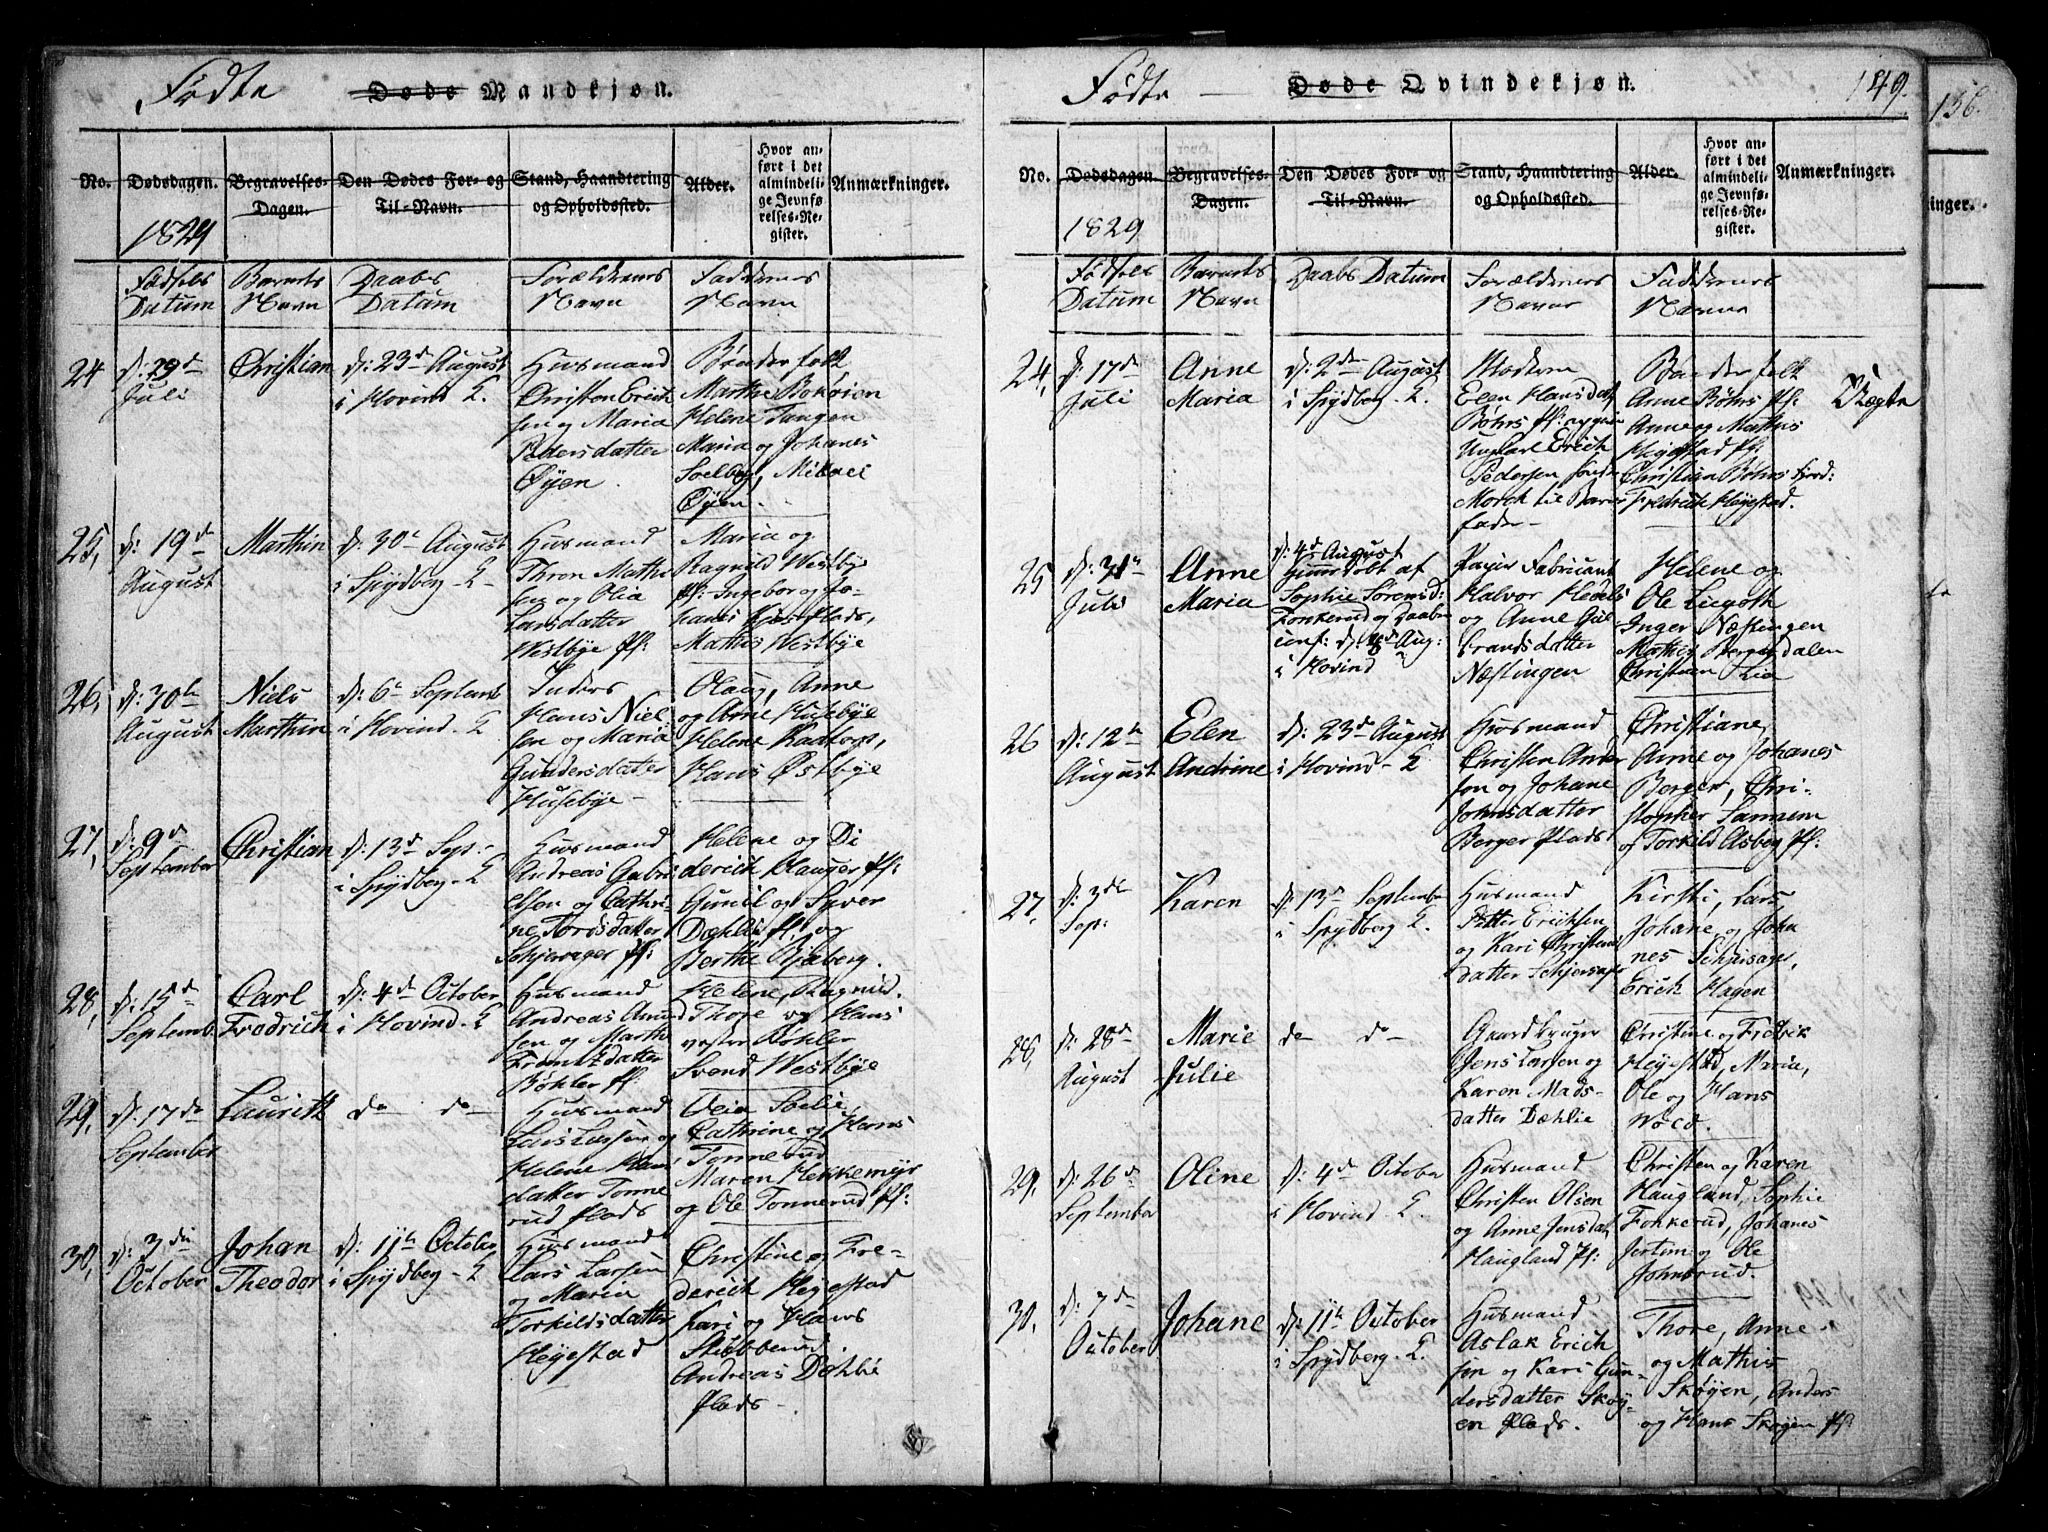 Fødte Døde Mandkjøn.
No. Dødsdagen. Begravelses-Dagen. Den Dødes For- og Til-Navn. Stand, Haandtering og Opholdssted. Alder. Hvor anført i det almindelige Jevnførelses-Register. Anmærkninger.
1829
Fødsels Datum
Barnets Navn
Daabs Datum
Forældrenes Navn
Faddernes Navn
24
d: 29d
Juli
Christian
d: 23d August
i Hovind K.
Husmand
Christen Erich
sen og Maria
Pedersdatter
Øyen
Bønderfolk
Marthe Bokøien
Helene Tangen
Maria og Johanes
Soelberg, Mikael
Øyen
25,
d: 19d
August
Marthin
d: 30d August
i Spydberg K
Husmand
Thron Mathi
sen og Olia
Larsdatter
Westbye Pl:
Maria og
Ragnild Westbye
Pl: Ingebor og Jo-
hanes Plads,
Mathis Westbye
26,
d: 30te
August
Niels
Marthin
d: 6te Septemb
i Hovind K
Inders
Hans Niel
sen og Maria
Gundersdatter
Husebye
Olaug, Anne
og Arne Husebye
Helene
Hans Østbye
27,
d: 9d
September
Christian
d: 13d Sep:
i Spydberg K
Husmand
Andreas Gabri
elsen og Cathri-
ne Tordsdatter
Schjersager Pl:
Helene og Di
derich Hauger Pl:
Gunil og Syver
Dæhlie Pl: og
Berthe Bjaberg.
28,
d: 15d
Septemb.
Carl
Fredrich
d: 4d October
i Hovind K
Husmand
Andreas Amund
sen og Marth
Frantzdatter
Bøhler Pl:
Helene, Ragnild.
Thore og Hans
vestre Bøhler
Svend Westbye
29,
d: 17de
September
Lauritz
do do
Husmand
Lars Larsen og
Helene Hans
datter Tonne
rud Plads
Olia Soelie
Cathrine og Hans
Tonnerud
Maren Hekkemyr
og Ole Tonnerud Pl:
30,
d: 3die
October
Johan
Theodor
d: 11te October
i Spydberg K
Husmand
Lars Larsen
og Maria
Torkildsdatter
Heyestad
Christine og Fre-
derich Heyestad
Kari og Hans
Stubberud.
Andreas Dæhlie
Plads
Fødte Døde Qvindekjøn. 149.
No. Dødsdagen. Begravelses-Dagen. Den Dødes For- og Til-Navn. Stand, Haandtering og Opholdssted. Alder. Hvor anført i det almindelige Jevnførelses-Register. Anmærkninger.
1829
Fødsels Datum
Barnets Navn
Daabs Datum
Forældrenes Navne
Faddernes Navne
24,
d: 17d
Juli
Anne
Maria
d: 2den August
i Spydberg K.
Moderen
Elen Hansdat
Bøhrs Pl: angiver
Ungkarl Erich
Pedersen
Morch til Barne
fader
Bønderfolk
Anne Bøhrs Pl:
Anne og Mathis
Heyestad Pl:
Christian Bøhrs
Fredrich Heyestad.
Uægte
25
d: 31te
Juli
Anne
Maria
d: 4d August
hjemdøbt af
Sophie Sørensd:
Fonkerud og Daaben
conf: d: Aug:
i Hovind
Papir Fabricant
Halvor Hedels
og Anne Gul
brandsdatter
Næstingen
Helene og
Ole Lugoth
Inger Næstingen
Mathis Bergsdalen
Christian Lia
26
d: 12te
August
Elen
Andrine
d: 23d August
i Hovind K
Husmand
Christen Ander
sen og Johane
Johnsdatter
Berger Plads
Christiane,
Anne og Johanes
Berger, Chri-
stopher Sannem
og Torkild Asberg Pl:
27.
d: 3die
Sep:
Karen
d: 13d Septembr
i Spydberg K.
Husmand
Petter Erichsen
og Kari Christens
datter Schjersager
Kirsti, Lars,
Johane og Joha
nes Schjersager,
Erich Hagen
28,
d: 28d
August
Marie
Julie
do do
Gaardbruger
Jens Larsen og
Karen Mads-
datter Dæhlie
Christine og Fredrik
Heyestad, Maria,
Ole og Hans
29,
d: 26d
September
Oline
d: 4d Octobr
i Hovind K.
Husmand
Christen Olsen
og Anne Jensdat
Haugland Pl:
Christen og Karen
Haugland, Sophie
Fonkerud, Johanes
og Ole
Johnsrud.
30,
d: 7d
October
Johane
d: 11te October
i Spydberg K.
Husmand
Aslak Erich
sen og Kari Gun-
dersdatter Skøy-
en Plads.
Thore, Anne
og Mathis
Skøyen, Anders
og Hans Skøyen Pl:
156.
ninger.